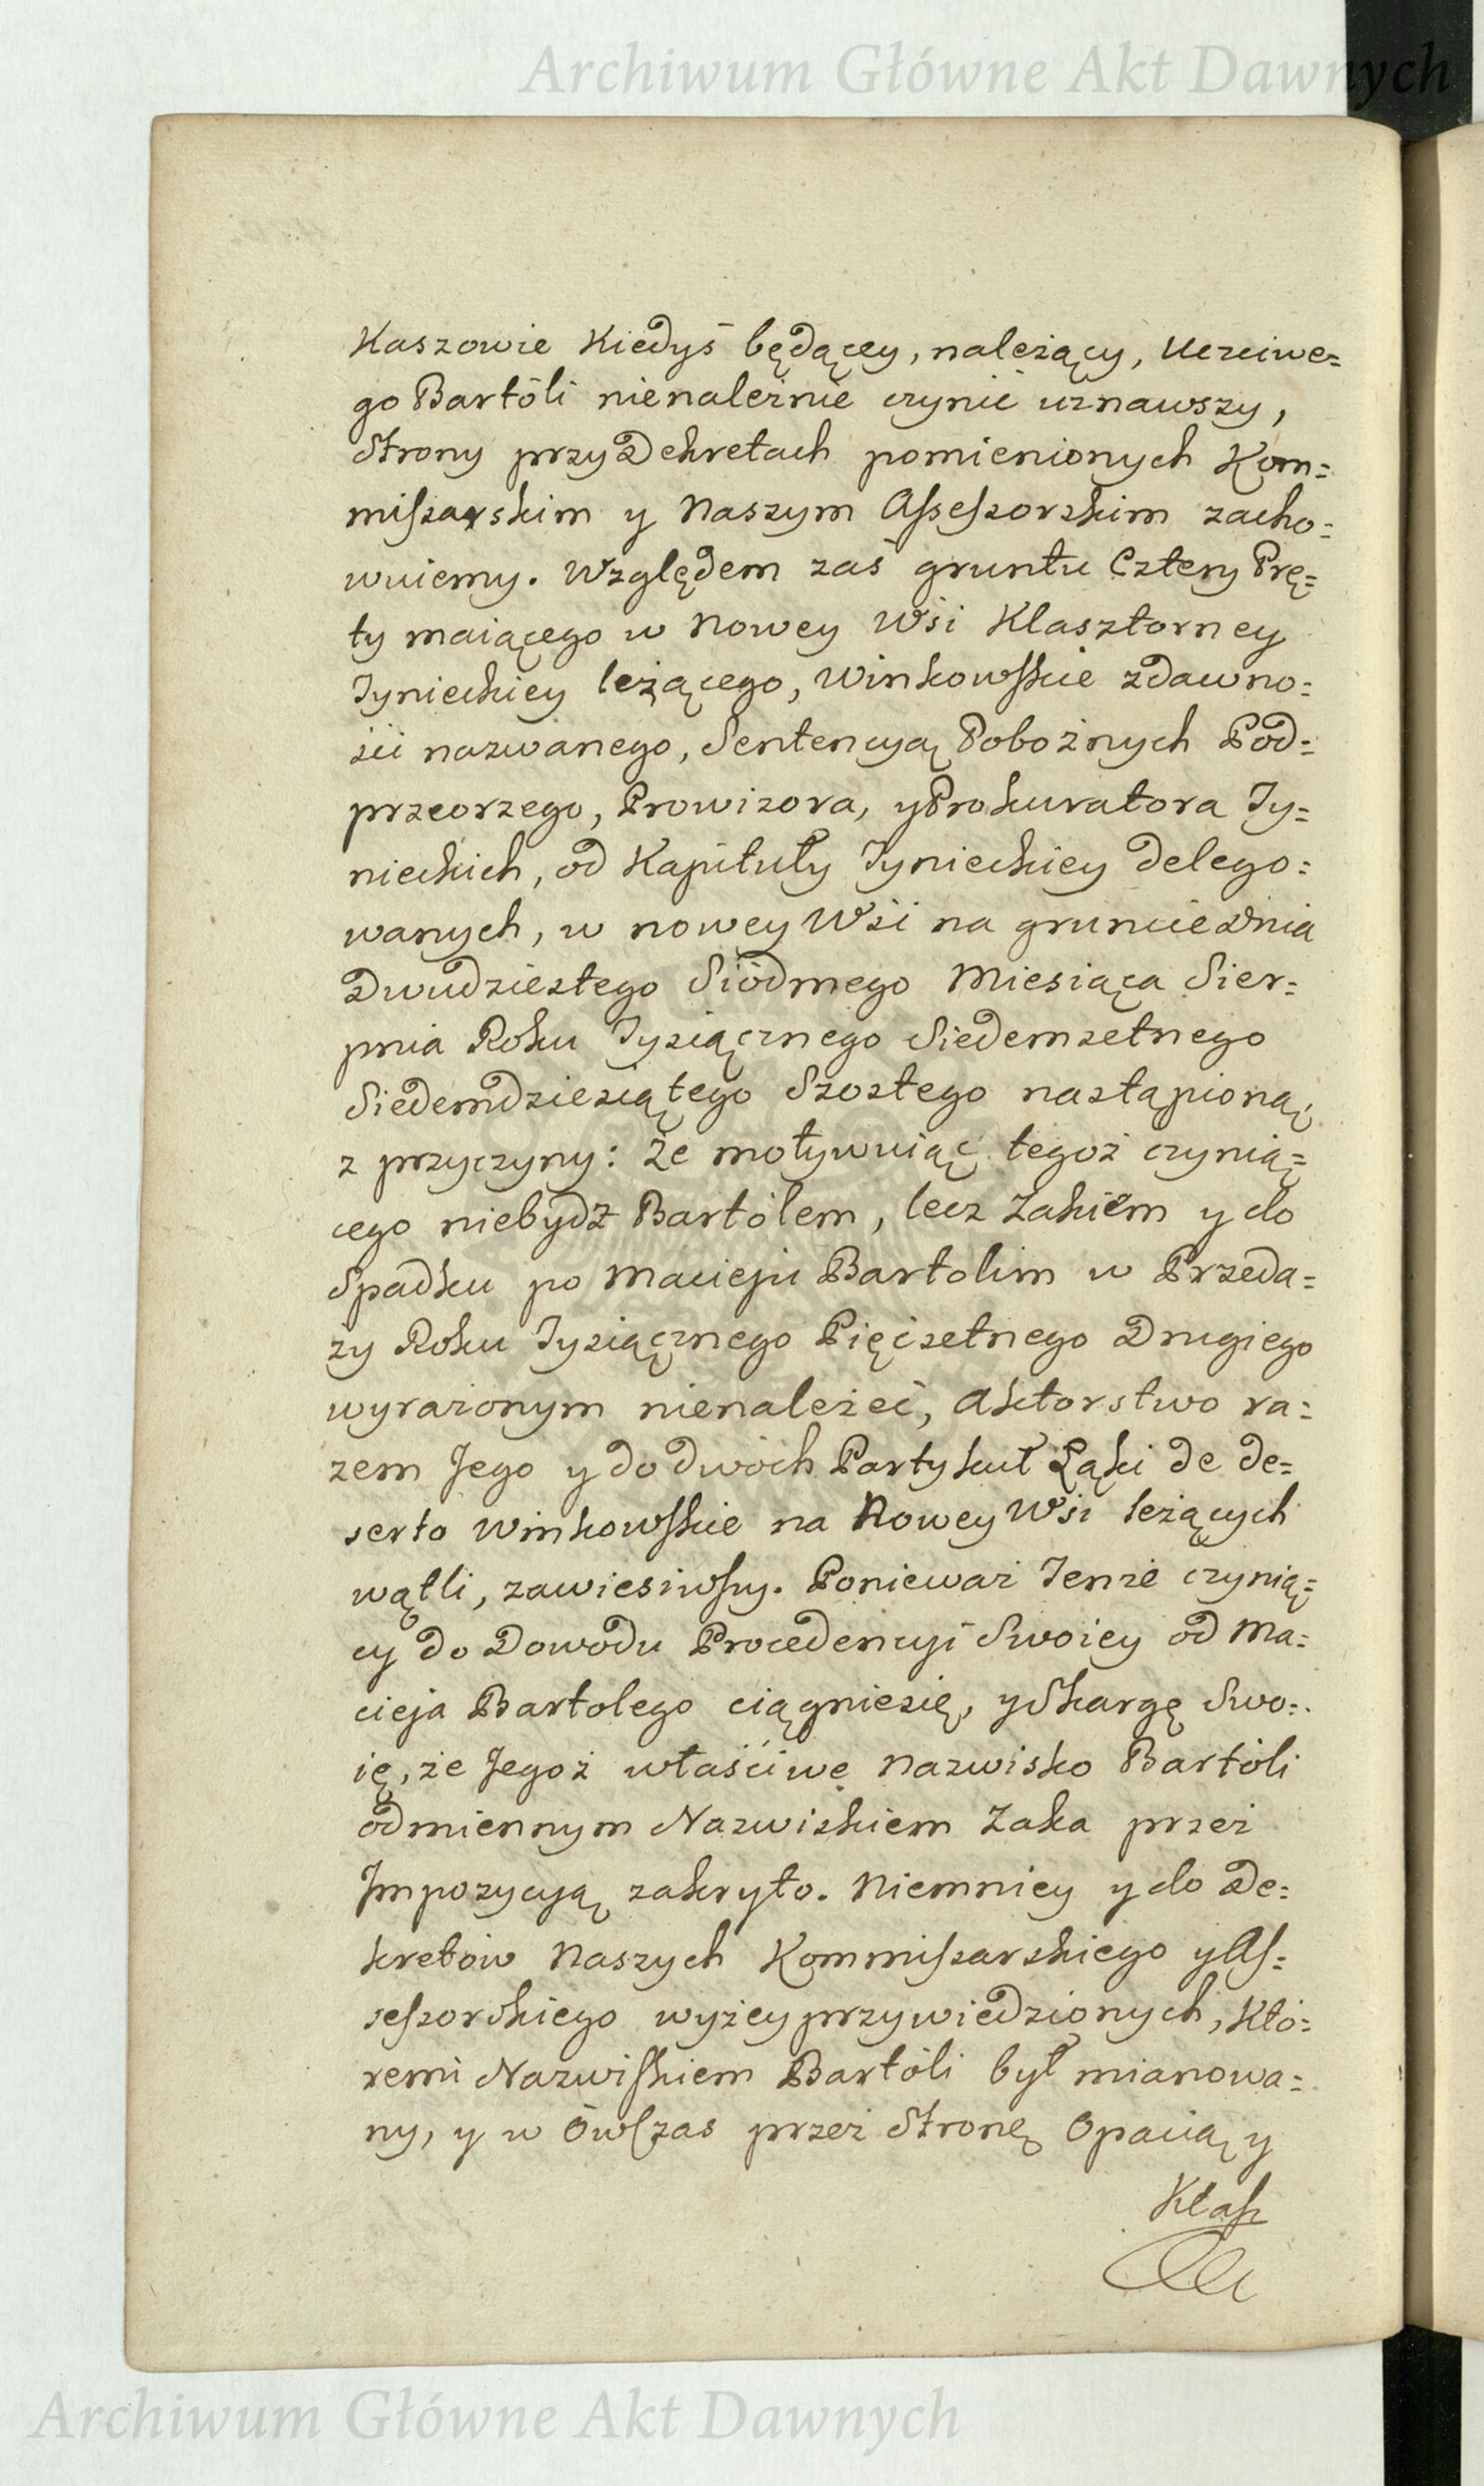 Archiwum Główne Akt Dawnych
Kaszowie Kiedyś będącey, należący, Uczciwe=
go Bartóli nienależnie czynić uznawszy,
Strony przy Dekretach pomienionych Kom=
miſsarskim y Naszym Aſseſsorskim zacho=
wuiemy. Względem zaś gruntu Cztery Prę=
ty maiącego w Nowey Wsi Klasztorney
Tynieckiey leżącego, Winkowſkie zdawno=
ści nazwanego, Sentencyą Pobożnych Pod=
przeorzego, Prowizora, y Prokuratora Ty=
nieckich, od Kapituły Tynieckiey delego=
wanych, w nowey Wsi na gruncie dnia
Dwudziestego Siódmego Miesiąca Sier=
pnia Roku Tysiącznego Siedemsetnego
Siedemdziesiątego Szostego nastąpioną,
z przyczyny: że motywuiąc tegoż czynią=
cego niebydź Bartólem, lecz Żakiem y do
Spadku po Macieju Bartolim w Przeda=
ży Roku Tysiącznego Pięćsetnego Drugiego
wyrażonym nienależeć, Aktorstwo ra=
zem Jego y do dwóch Partykuł Łąki de de=
serto Winkowſkie na Nowey Wsi leżących
wątli, zawiesiwſzy. Ponieważ Tenże czynią=
cy do Dowodu Procedencyi Swoiey od Ma=
cieja Bartolego ciągniesię, y Skargę Swo=
ię, że Jegoż właściwe Nazwisko Bartóli
odmiennym Nazwiskiem Żaka przez
Impozycyą zakryto. Niemniey y do De=
kretów Naszych Kommiſsarskiego y Aſ=
seſsorskiego wyżey przywiedzionych, Któ=
remi Nazwiſkiem Bartóli był mianowa=
ny, y w ówſzas przez Stronę Opacią y
Klaſz
Archiwum Główne Akt Dawnych